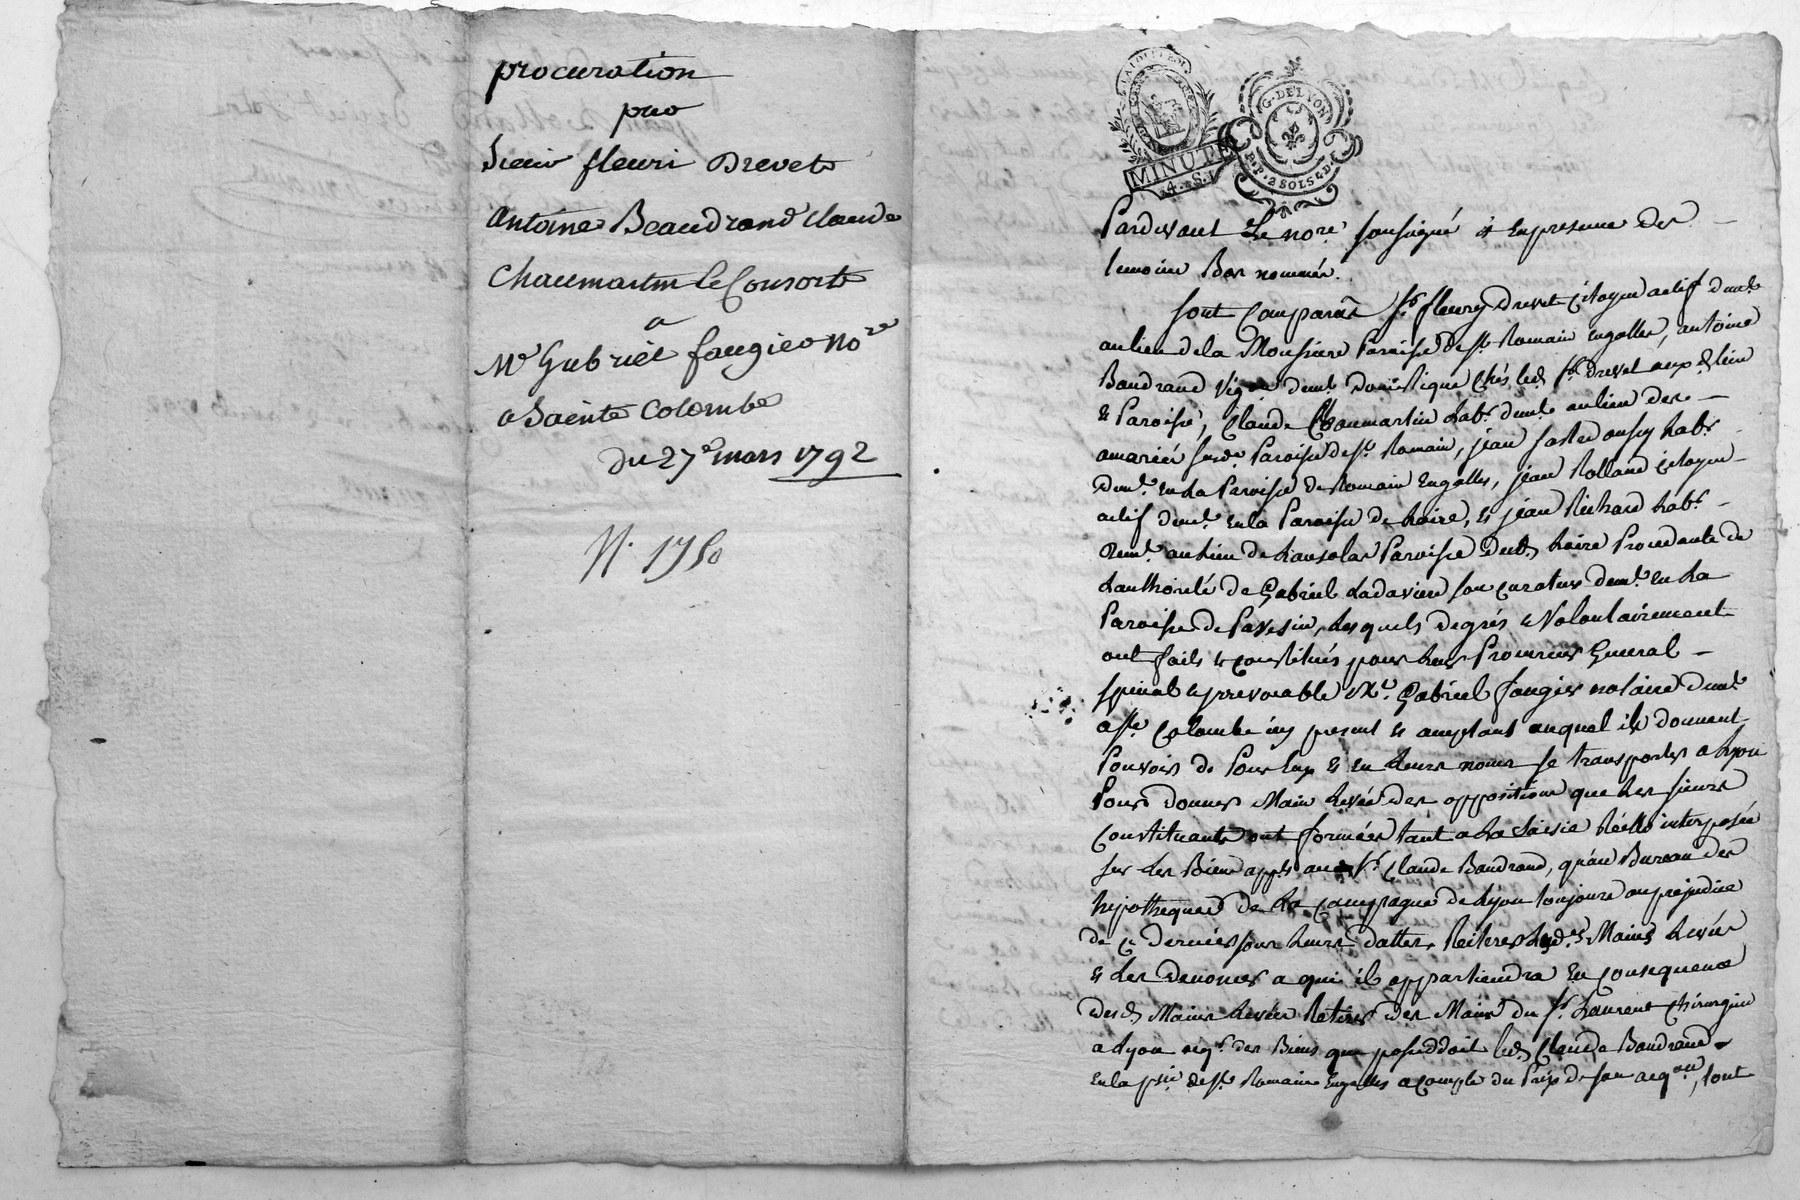 procuration
pro
Sieur fleuri Drevet
Antoine Beaudrand Claude
Chaumartin & Consorts
a
Me Gabriel faugier nore
a Sainte Colombe
du 27e mars 1792
N. 1750
LA LOI ET LE ROI
MINUTE
4. S.
G. DE LYON
P. P. 2 SOLS 4 D.
Pardevant Le nore soussigné & En presence des
temoins Bas nommés.
sont Comparus Sr. fleury Drevet Citoyen actif demt
au lieu de la Monsiere Paroisse de St. Romain Engalles, antoine
Baudrand demt Domestique Chés led. Sr. Drevet aux d. lieu
& Paroisse, Claude Chaumartin Lab. demt au lieu des
amariés susde Paroisse de St. Romain, jean Lab.
demt. En La Paroisse de Romain Engalles, jean Rolland citoyen
actif demt. en la Paroisse de haire, & jean Richard Lab.
demt. au Lieu de Paroisse dud. haire Procedante de
Lauthorité de Gabriel Ladaviere son curateur demt. En La
Paroisse de Pavesin, Lesquels de grés & Volontairement
ont faits & constitués pour Leur Procureur General
special & irrevocable Me. Gabriel faugier notaire demt
a Ste Colombe icy present & acceptant auquel ils donnent
Pouvoir de Pour Eux & en Leurs noms se transporter a Lyon
Pour donner Main Levée des oppositions que Les sieurs
Constituants ont formées tant a La Saisie Réelle interposée
sur Les Biens appts au Sr. Claude Baudrand, qu'au Bureau des
hipotheques de La Campagne de Lyon toujours au prejudice
de ce dernier sous Leurs dattes, Reiterer Lesdes Mains Levées
& Les denoncer a qui il appartiendra En Consequence
desd. Mains Levées Retirer des Mains du Sr. Laurent Chirurgien
a Lyon acqr. des Biens que posseddoit led. Claude Baudrand
En la psse de St. Romain Engalles a Compte du Prix de son acqon, tout